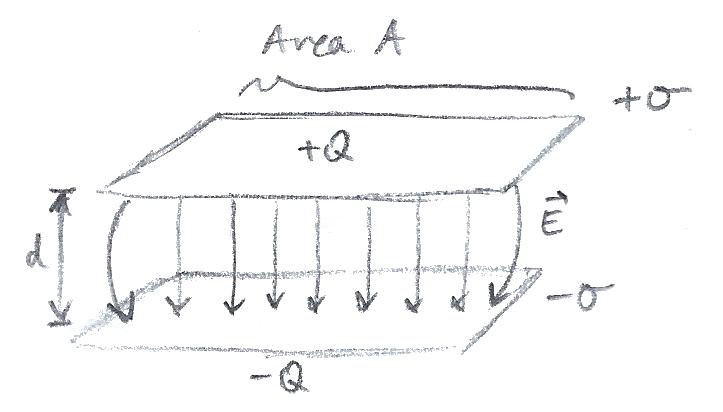 Area A
+σ
+Q
d
E⃗
-σ
-Q